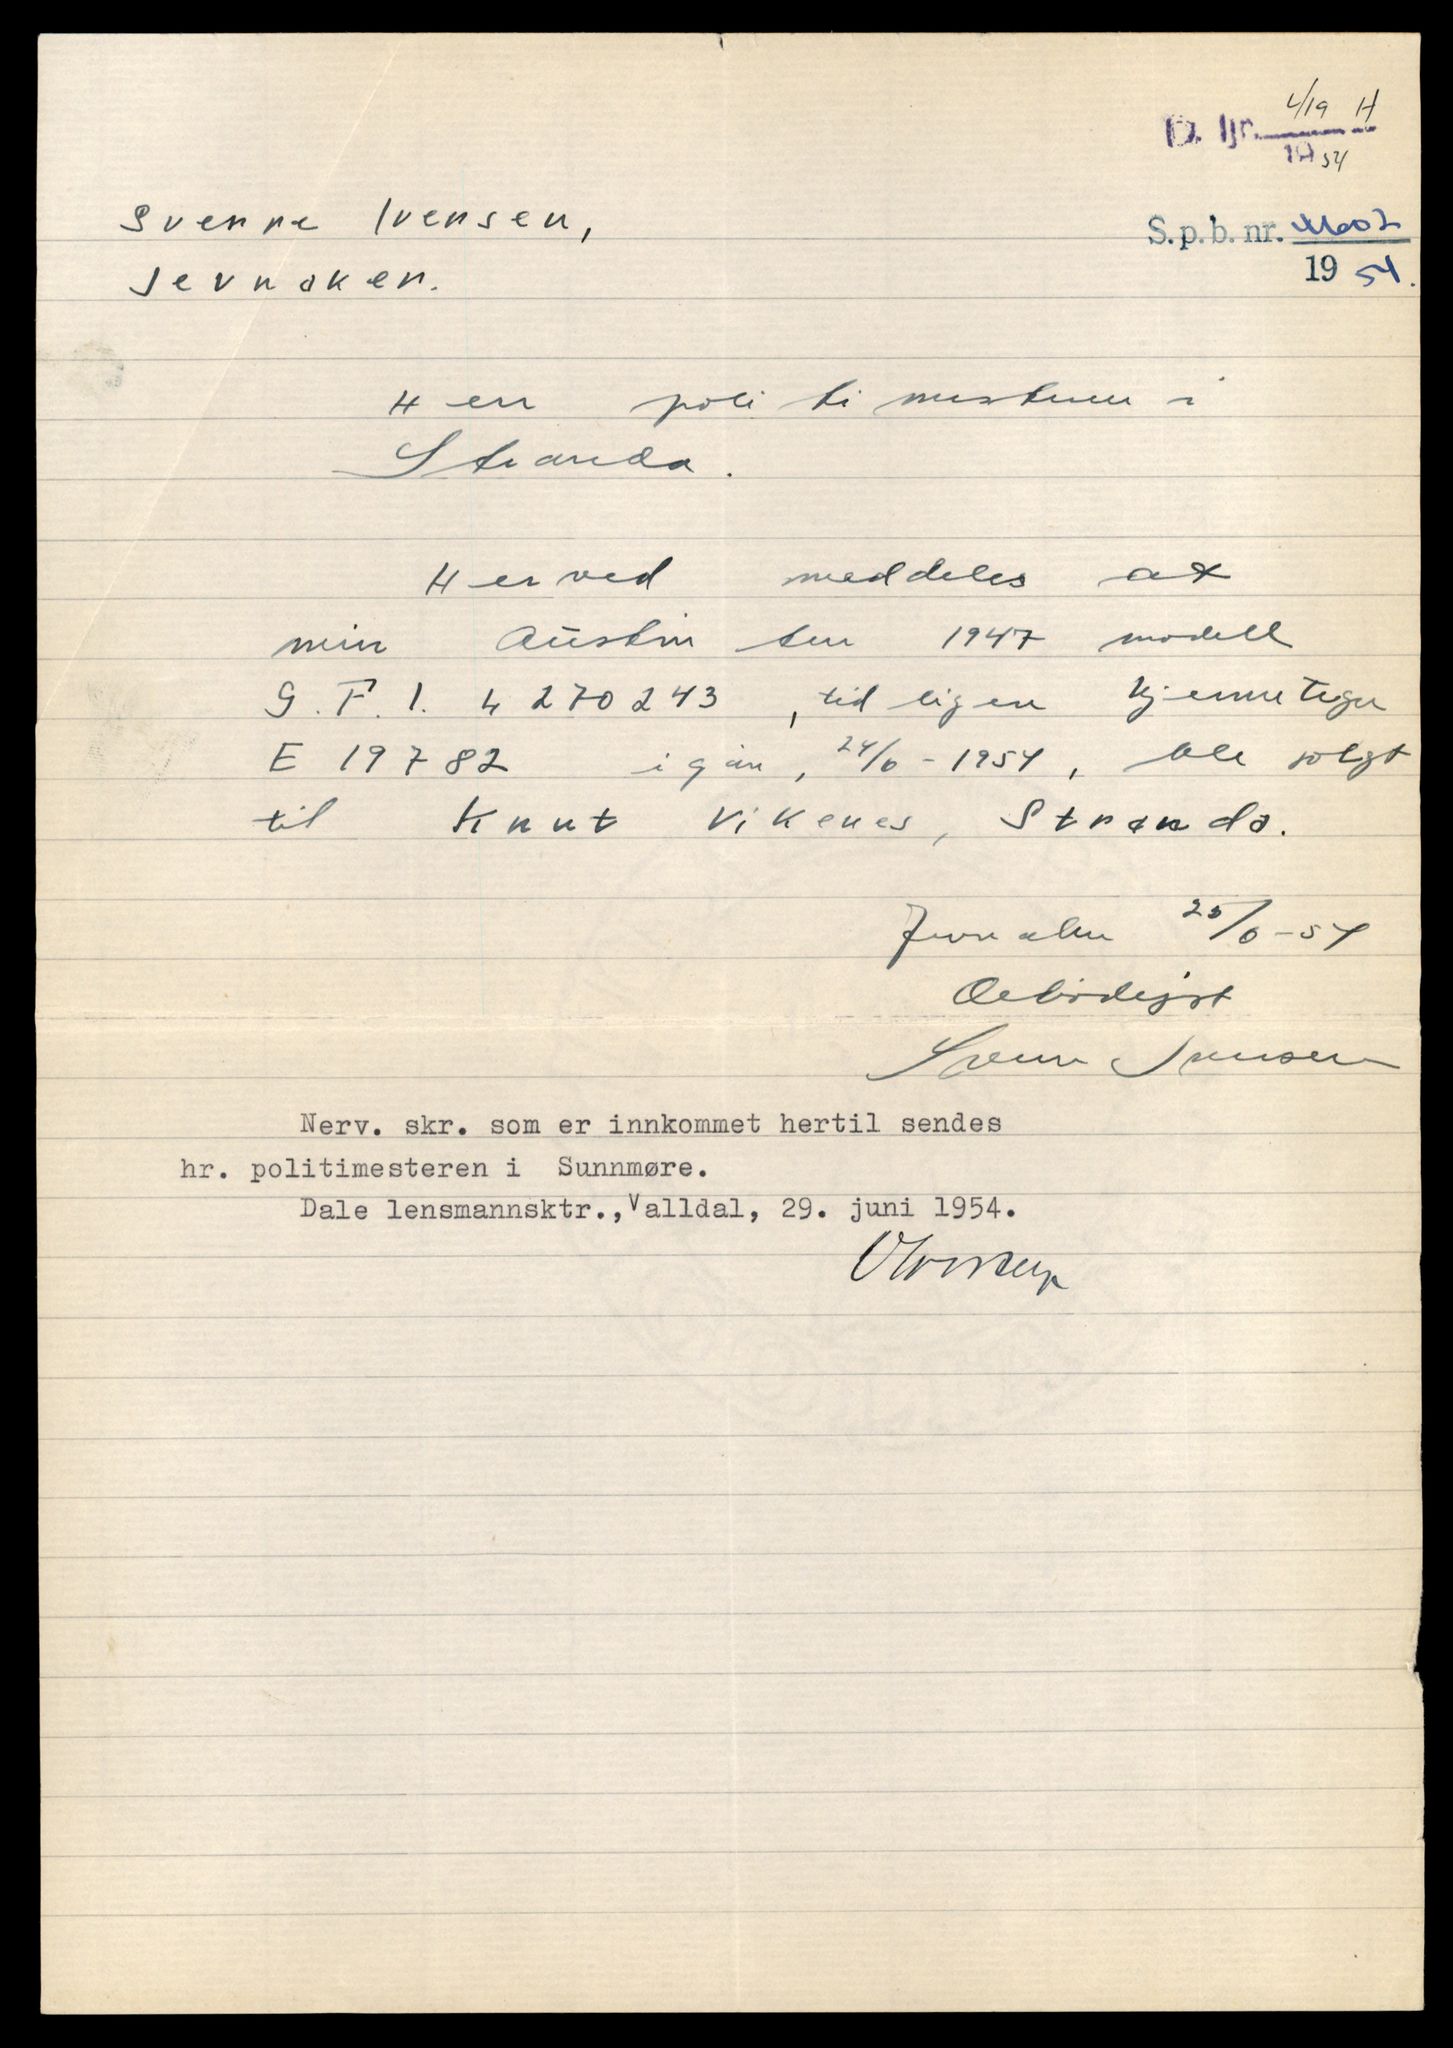 D. Jr. 419 H
19 54
Sverre Iversen,
S.p.b. nr.
Jevnaker.
19 54.
Herr politimesteren i
Stranda.
Herved meddeles at
min Austin ten 1947 modell
G.F.1. 4270243, tidligere kjennetegn
E 19782 igår, 24/6-1954, ble solgt
til Knut Vikenes, Stranda.
Jevnaker 25/6-54
Ærbødigst
Sverre Iversen
Nerv. skr. som er innkommet hertil sendes
hr. politimesteren i Sunnmøre.
Dale lensmannsktr., Valldal, 29. juni 1954.